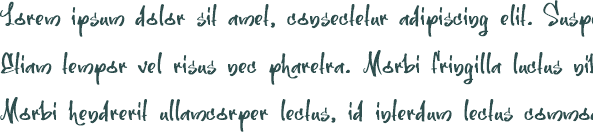 Lorem ipsum dolor sit amet, consectetur adipiscing elit. Susp
Etiam tempor vel risus nec pharetra. Morbi fringilla luctus ni
Morbi hendrerit ullamcorper lectus, id interdum lectus commo